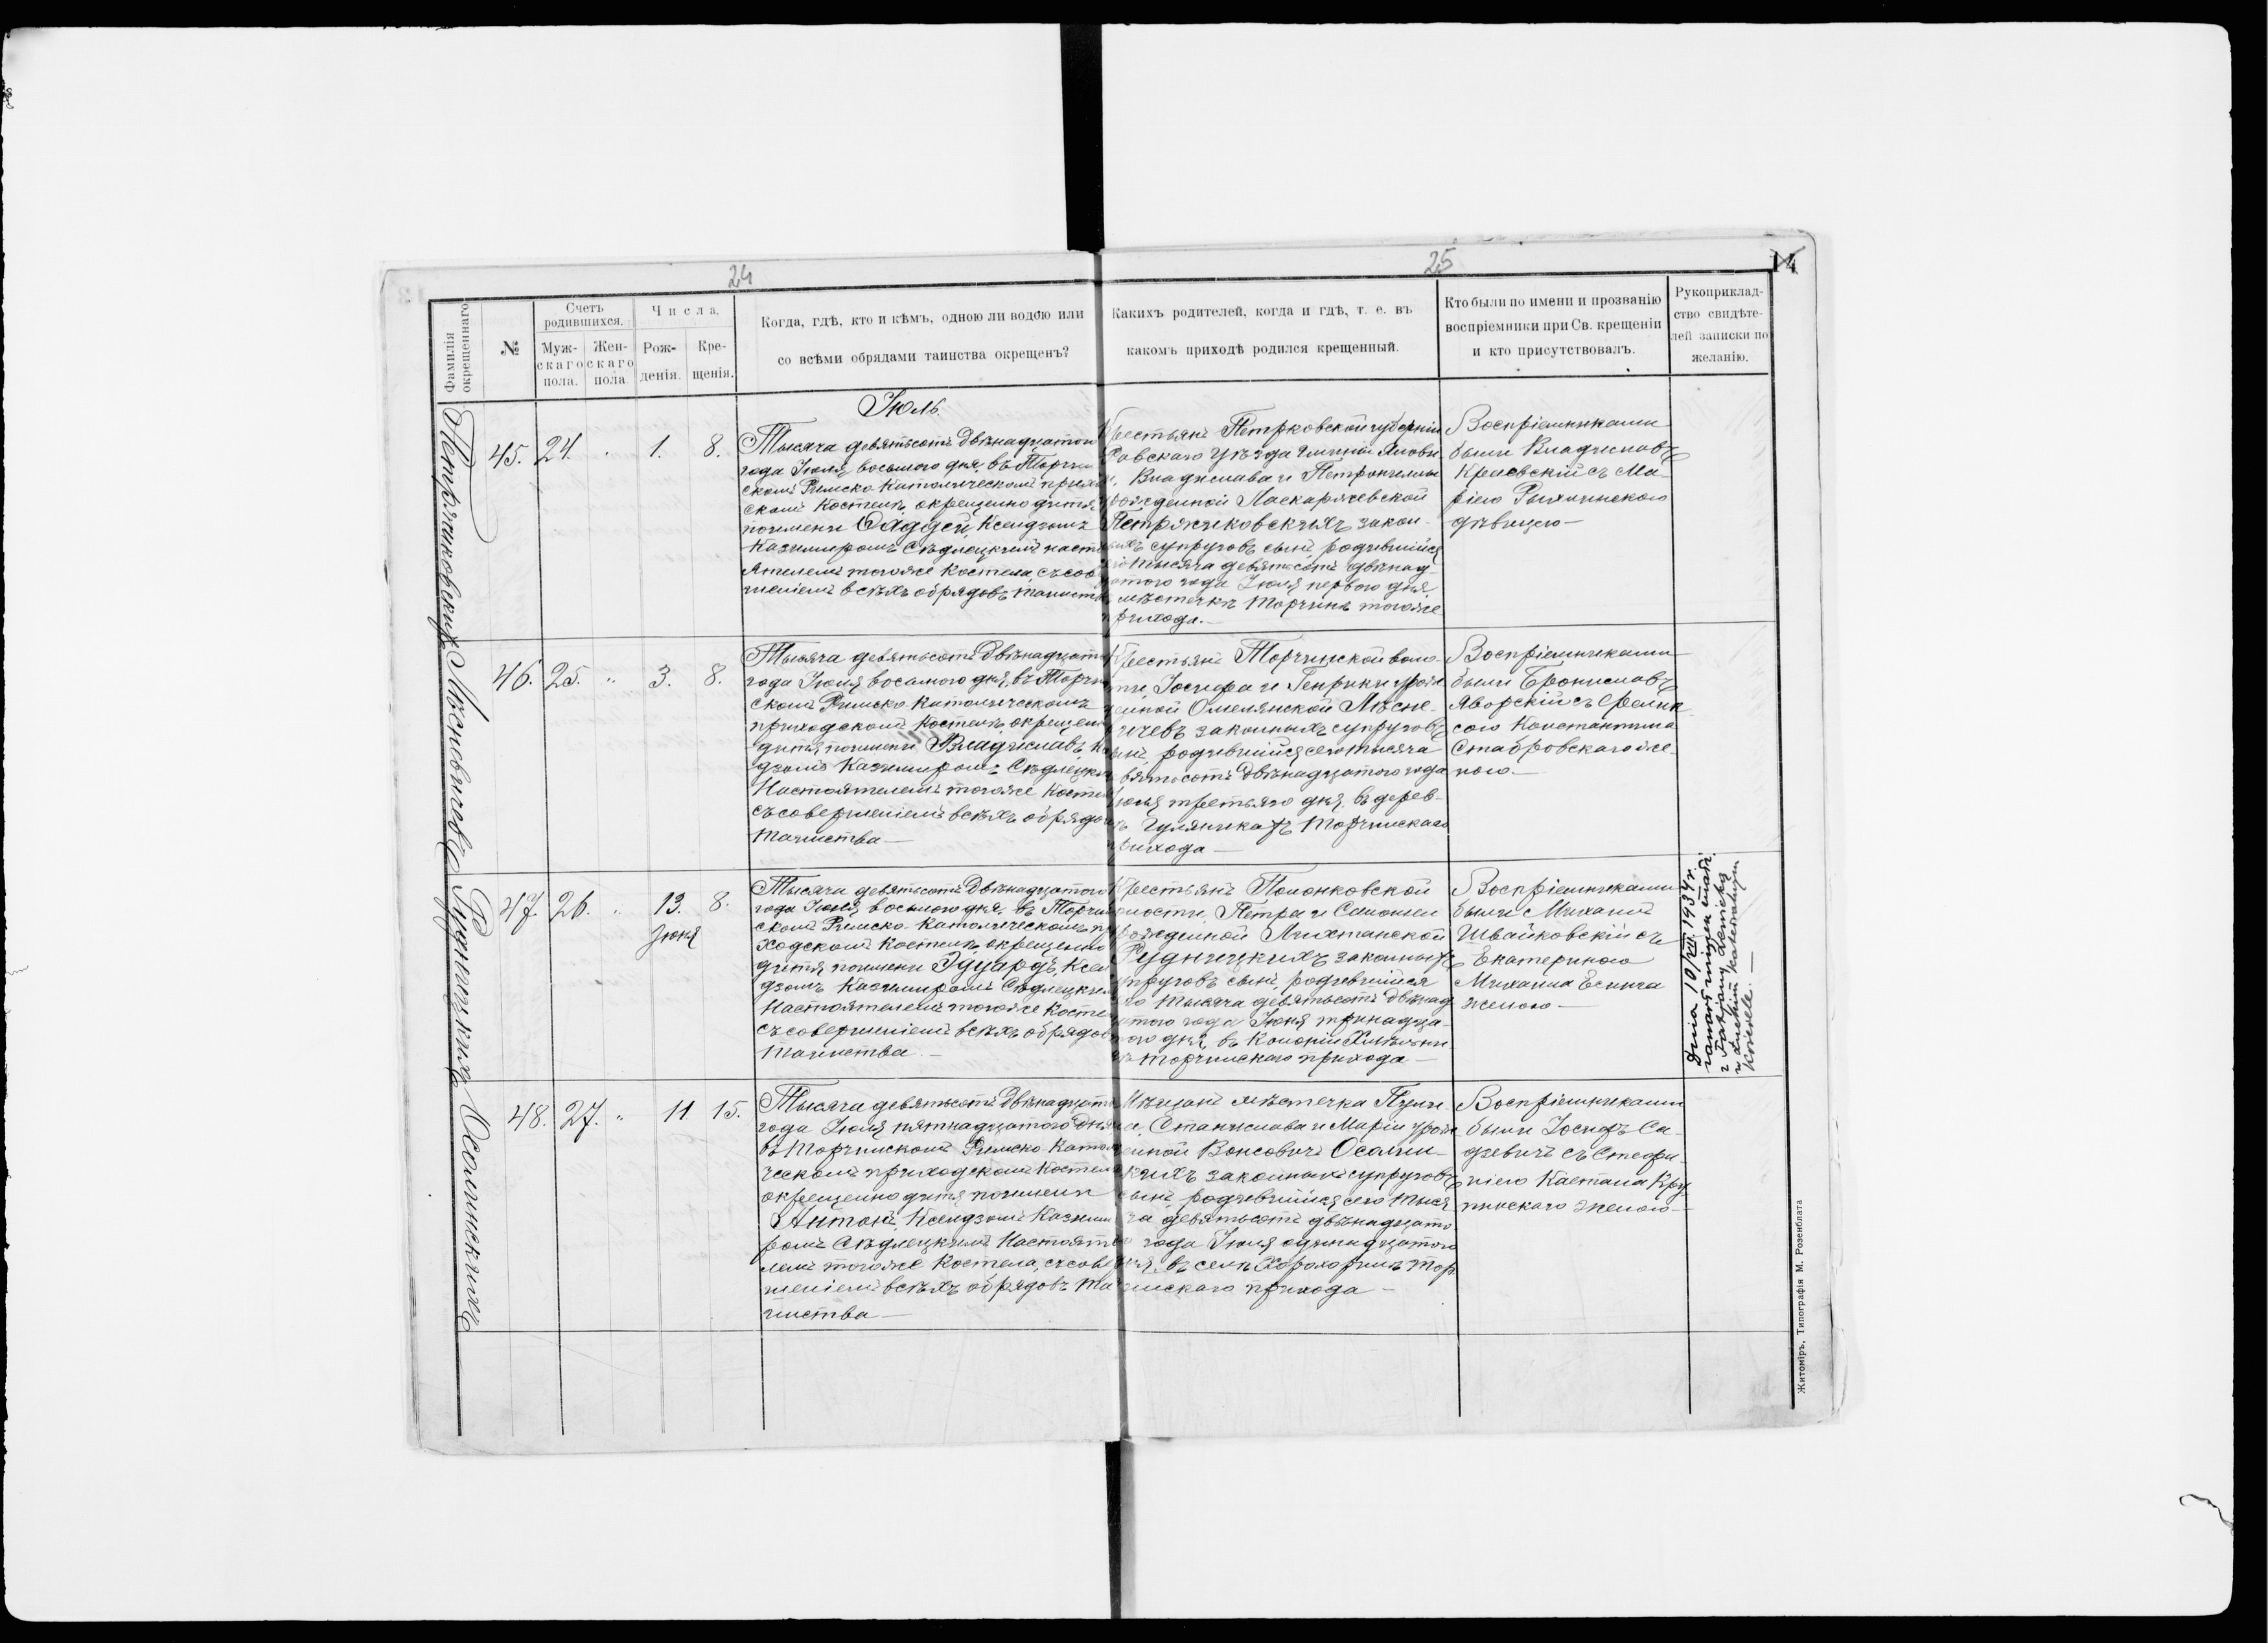 24
25
14
Фамилія окрещеннаго
№
Счетъ родившихся.
Мужскаго пола.
Женскаго пола.
Числа.
Рожденія.
Крещенія.
Когда, гдѣ, кто и кѣмъ, одною ли водою или
со всѣми обрядами таинства окрещенъ?
Какихъ родителей, когда и гдѣ, т. е. въ
какомъ приходѣ родился крещенный.
Кто были по имени и прозванію
воспріемники при Св. крещеніи
и кто присутствовалъ.
Рукоприклад-
ство свидѣте-
лей записки по
желанію.
Іюль.
45. 24. 1. 8.
Тысяча девятьсотъ двѣнадцатого
года Іюля восьмого дня, въ Торчин
скомъ Римско Католическомъ
скомъ Костелѣ, окрещено дитя
поимени Фаддей, Ксендзомъ
Казимиромъ Сѣдлецкимъ насто
ятелемъ тогоже Костела, съ сов
шеніемъ всѣхъ обрядовъ таинст
Крестьянъ Петрковской губерніи
Равскаго уѣзда гмины
Владислава и Петронелли
рожденной Ласкаржевской
Петряниковскихъ закон
ныхъ супруговъ сынъ, родившійся
тысяча девятьсотъ двѣнад
цатого года Іюля первого дня
мѣстечкѣ Торчинѣ тогоже
прихода.
Воспріемниками
были Владиславъ
Краевскій съ Ма-
ріею Рыхлинскою
дѣвицею
46. 25. " 3. 8.
Тысяча девятьсотъ двѣнадцато
года Іюля восьмого дня, въ Торчи
скомъ Римско Католическомъ
приходскомъ Костелѣ окрещено
дитя поимени Владиславъ, Ксе
дзомъ Казимиромъ Сѣдлецким
Настоятелемъ тогоже Косте
съ совершеніемъ всѣхъ обрядов
таинства
Крестьянъ Торчинской воло-
сти, Іосифа и Генрики урож
денной Омелянской Лѣсне-
вичевъ законныхъ супруговъ
сынъ, родившійся сего тысяча
девятьсотъ двѣнадцатого года
Іюля третьяго дня, въ дерев-
нѣ Гуляникахъ Торчинскаго
прихода
Воспріемниками
были Брониславъ
Яворскій съ Фелик
сою Константина
Стабровскаго же-
ною
47. 26. " 13. 8.
Іюня
Тысяча девятьсотъ двѣнадцатого
года Іюля восьмого дня, въ Торчин
скомъ Римско Католическомъ при
ходскомъ Костелѣ окрещено
дитя поимени Эдуардъ, Ксен
дзомъ Казимиромъ Сѣдлецким
Настоятелемъ тогоже Косте
съ совершеніемъ всѣхъ обрядов
таинства
Крестьянъ Полонковской
волости, Петра и Саломеи
урожденной Лихтанской
Рудницкихъ законныхъ
супруговъ сынъ, родившійся
сего тысяча девятьсотъ двѣнад
цатого года Іюня тринадца-
того дня, въ Колоніи
Торчинскаго прихода
Воспріемниками
были Михаилъ
Швайковскій съ
Екатериною
Михаила
женою
Dnia 10/XII 1934 r.
zawarł związek małż.
z
w Łuckim katedralnym
kościele.
48. 27. " 11 15.
Тысяча девятьсотъ двѣнадцато
года Іюля пятнадцатого дня
въ Торчинскомъ Римско Катол
ческомъ приходскомъ Костел
окрещено дитя поимени
Антонъ, Ксендзомъ Казими
ромъ Сѣдлецкимъ Настояте
лемъ тогоже Костела, съ совер
шеніемъ всѣхъ обрядовъ та
инства
Мѣщанъ мѣстечка
Станислава и Маріи урож
денной Вонсовичъ Осолин-
скихъ законныхъ супруговъ
сынъ, родившійся сего тыся
ча девятьсотъ двѣнадцато
го года Іюля одинадцатого
дня, въ селѣ Хорохоринѣ Тор
чинскаго прихода
Воспріемниками
были Іосифъ Са-
дзевичъ съ Стефа
ніею Каетана Кру
пинскаго женою
Петряниковскихъ
Лѣсневичевъ
Рудницкихъ
Осолинскихъ
Житоміръ, Типографія М. Розенблата